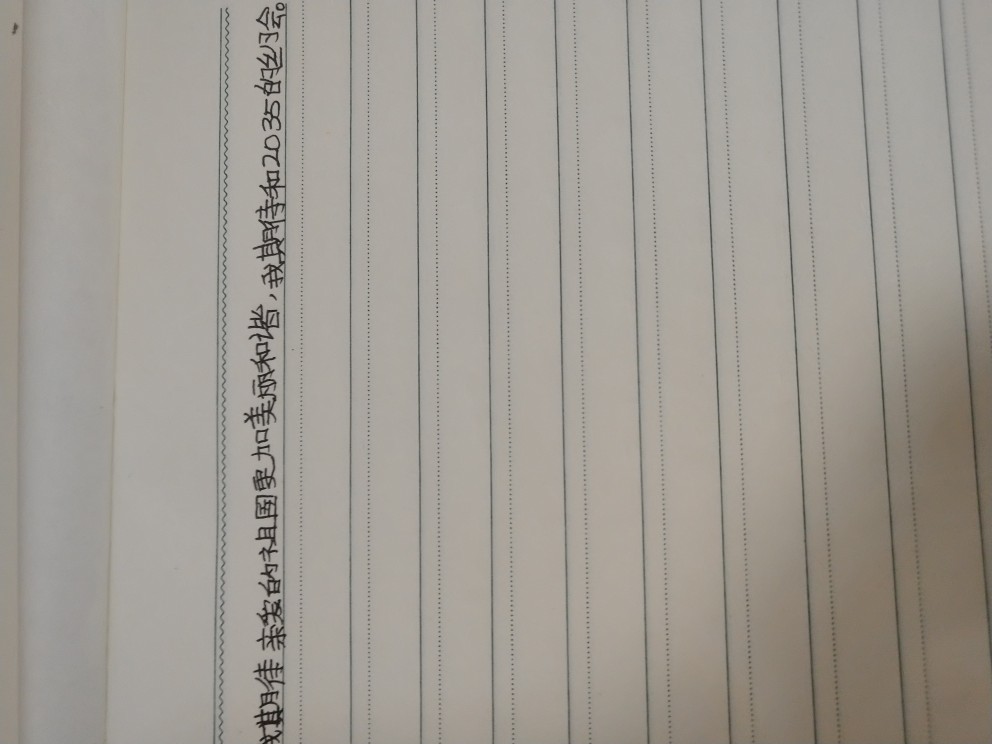 我期待亲爱的祖国更加美丽和谐，我期待和2035的约会。